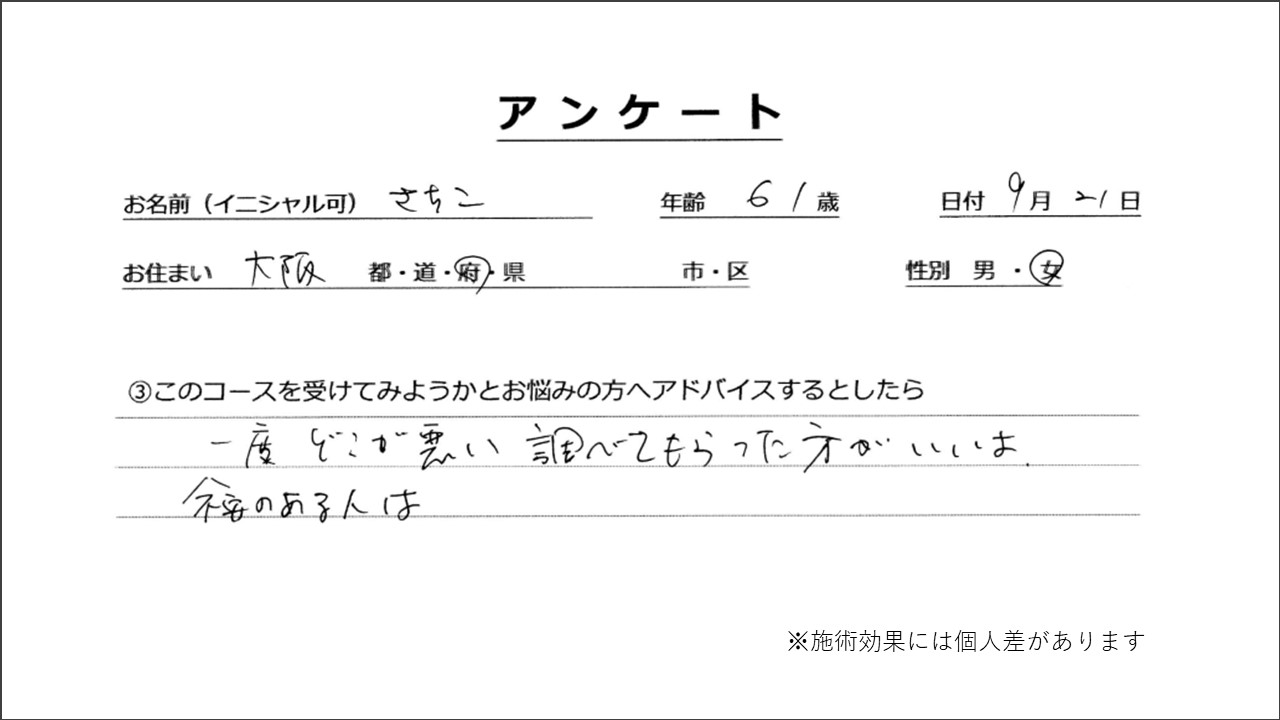 アンケート
お名前（イニシャル可） さちこ 年齢 61歳 日付 9月21日
お住まい 大阪 都・道・府・県 市・区 性別 男・女
③このコースを受けてみようかとお悩みの方へアドバイスするとしたら
一度どこが悪い調べてもらった方がいいよ.
不安のある人は
※施術効果には個人差があります